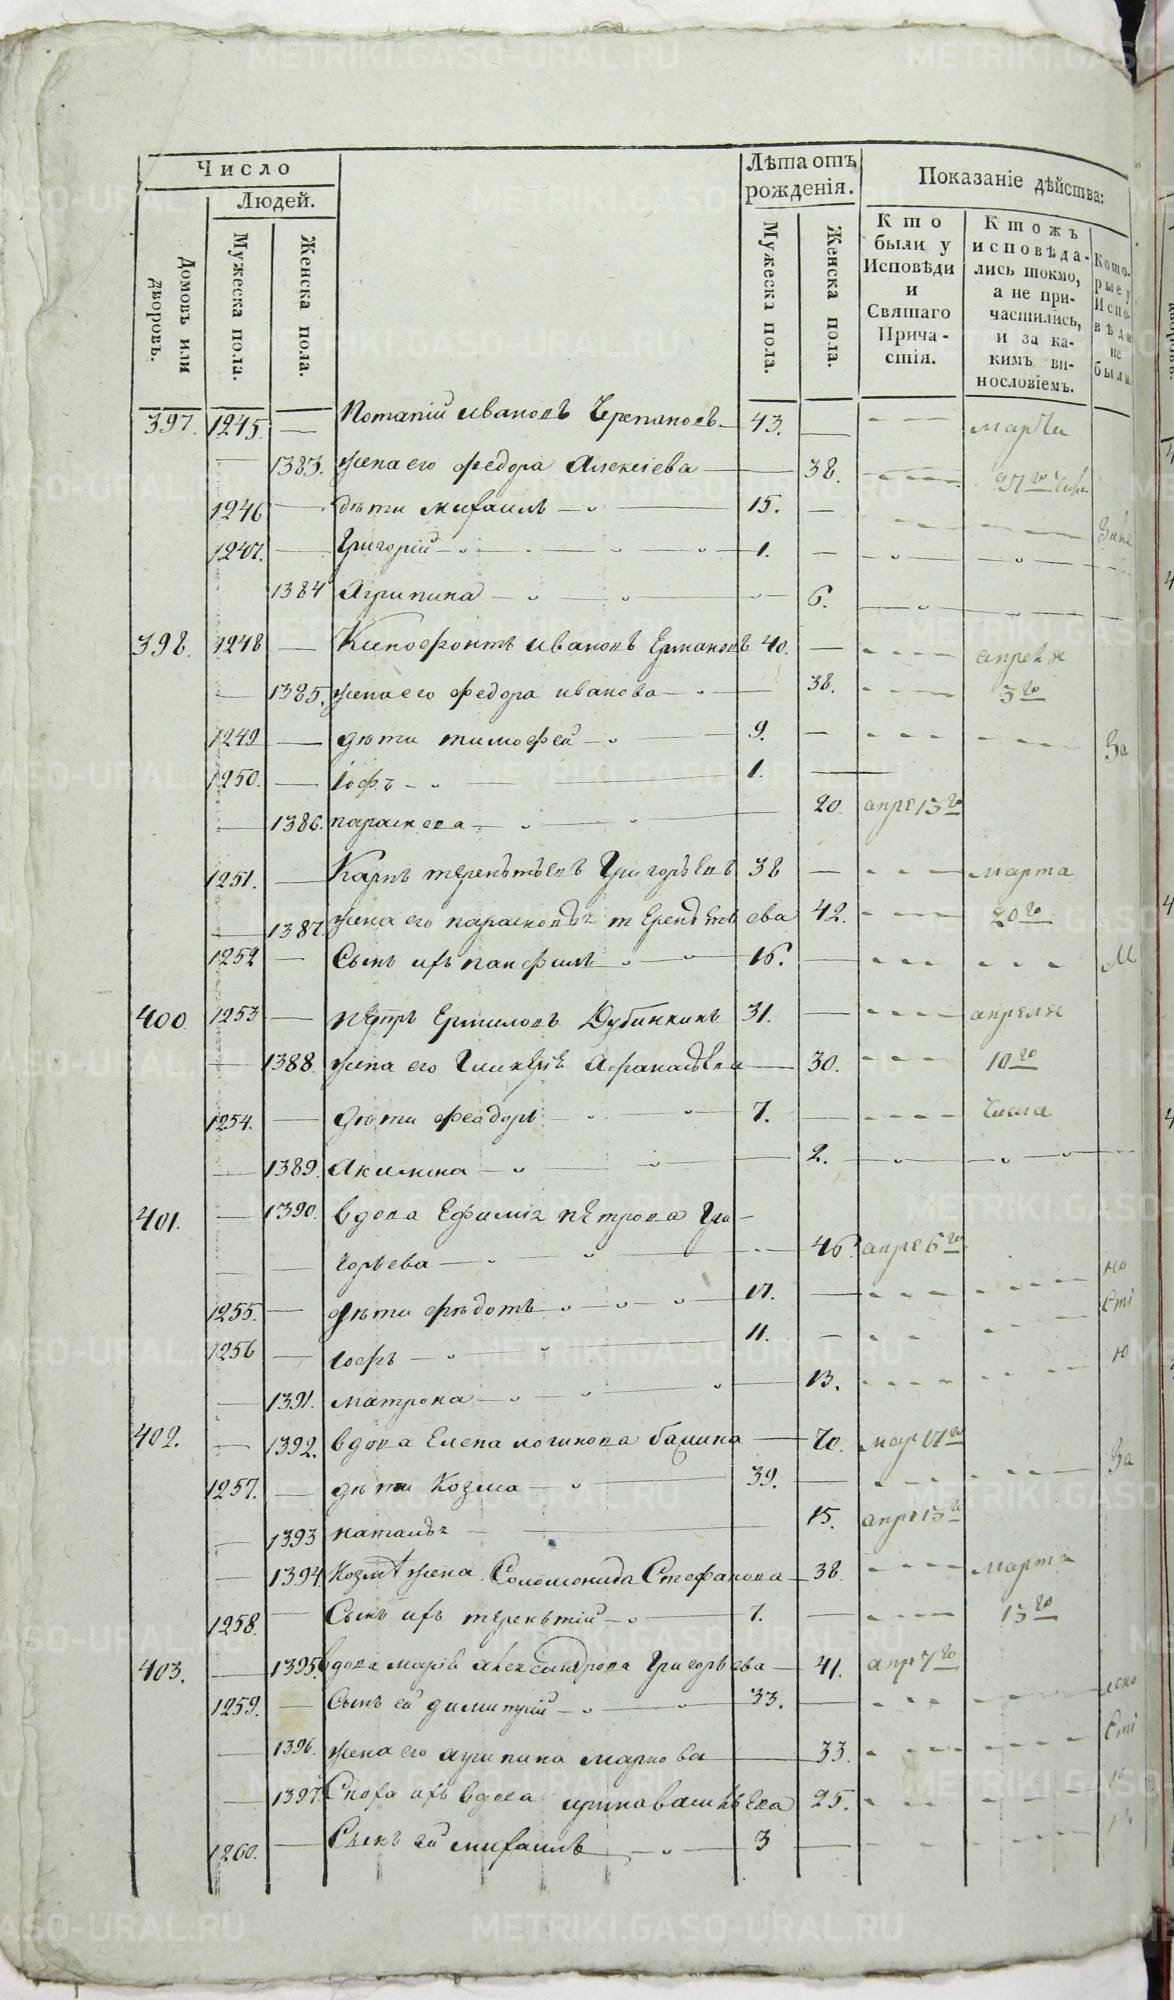 Число
Людей.
Домовъ или дворовъ.
Мужеска пола.
Женска пола.
Лѣта отъ рожденія.
Мужеска пола.
Женска пола.
Показаніе дѣйства:
Кто были у Исповѣди и Святаго Причастія.
Ктожъ исповѣдались токмо, а не причастились, и за какимъ винословіемъ.
Которые у Исповѣди не были.
397. 1245. Потапій Ивановъ Черепановъ 43. мар
1383. жена его Федора Алексіева 38. 27го
1246 дѣти Михаилъ 15.
1247. Григорій 1.
1384 Агрипина 6.
398. 1248 Ксенофонтъ Ивановъ Ермаковъ 40. апреля
1385. жена его Федора Иванова 38. 3го
1249 дѣти Тимофей 9. За
1250. Іофъ 1.
1386. параскева 20. апре 13го
1251. Карпъ терентьевъ Григорьевъ 38 марта
1387. жена его параскови терентьева 42. 20го
1252 Сынъ ихъ панфилъ 16.
400 1253 петръ Ермиловъ Дубинкинъ 31. апреля
1388. жена его Гликерія Афанасьева 30. 10го
1254. дѣти феодоръ 7. числа
1389. Акилина 2.
401. 1390. вдова Ефимія петрова Гри-
горьева 46. апре 6го
1255. дѣти федотъ 17.
1256 Іофъ 11.
1391. матрона 13.
402. 1392. вдова Елена логинова 70. мар 17го
1257. дѣти Козма 39. За
1393 наталья 15. апре 13го
1394 Козмы жена Соломонида Стефанова 38. марта
1258. Сынъ ихъ терентій 7. 13го
403. 1395. вдова марія александрова Григорьева 41. апр 7го
1259. Сынъ ей димитрій 33.
1396. жена его агрипина маркова 33.
1397. Сноха ихъ вдова ирина васильева 25.
1260. Сынъ ей михаилъ 3
METRIKI.GASO-URAL.RU